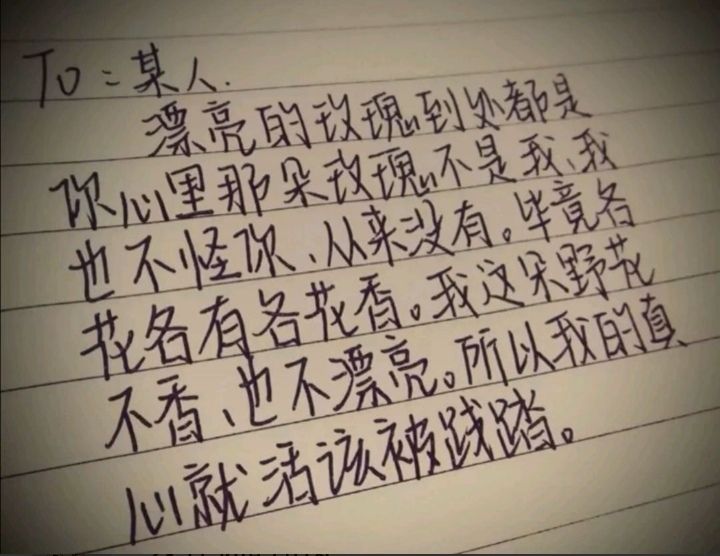 To：某人.
漂亮的玫瑰到处都是
你心里那朵玫瑰不是我、我
也不怪你、从来没有。毕竟各
花各有各花香。我这朵野花
不香、也不漂亮。所以我的真
心就活该被践踏。